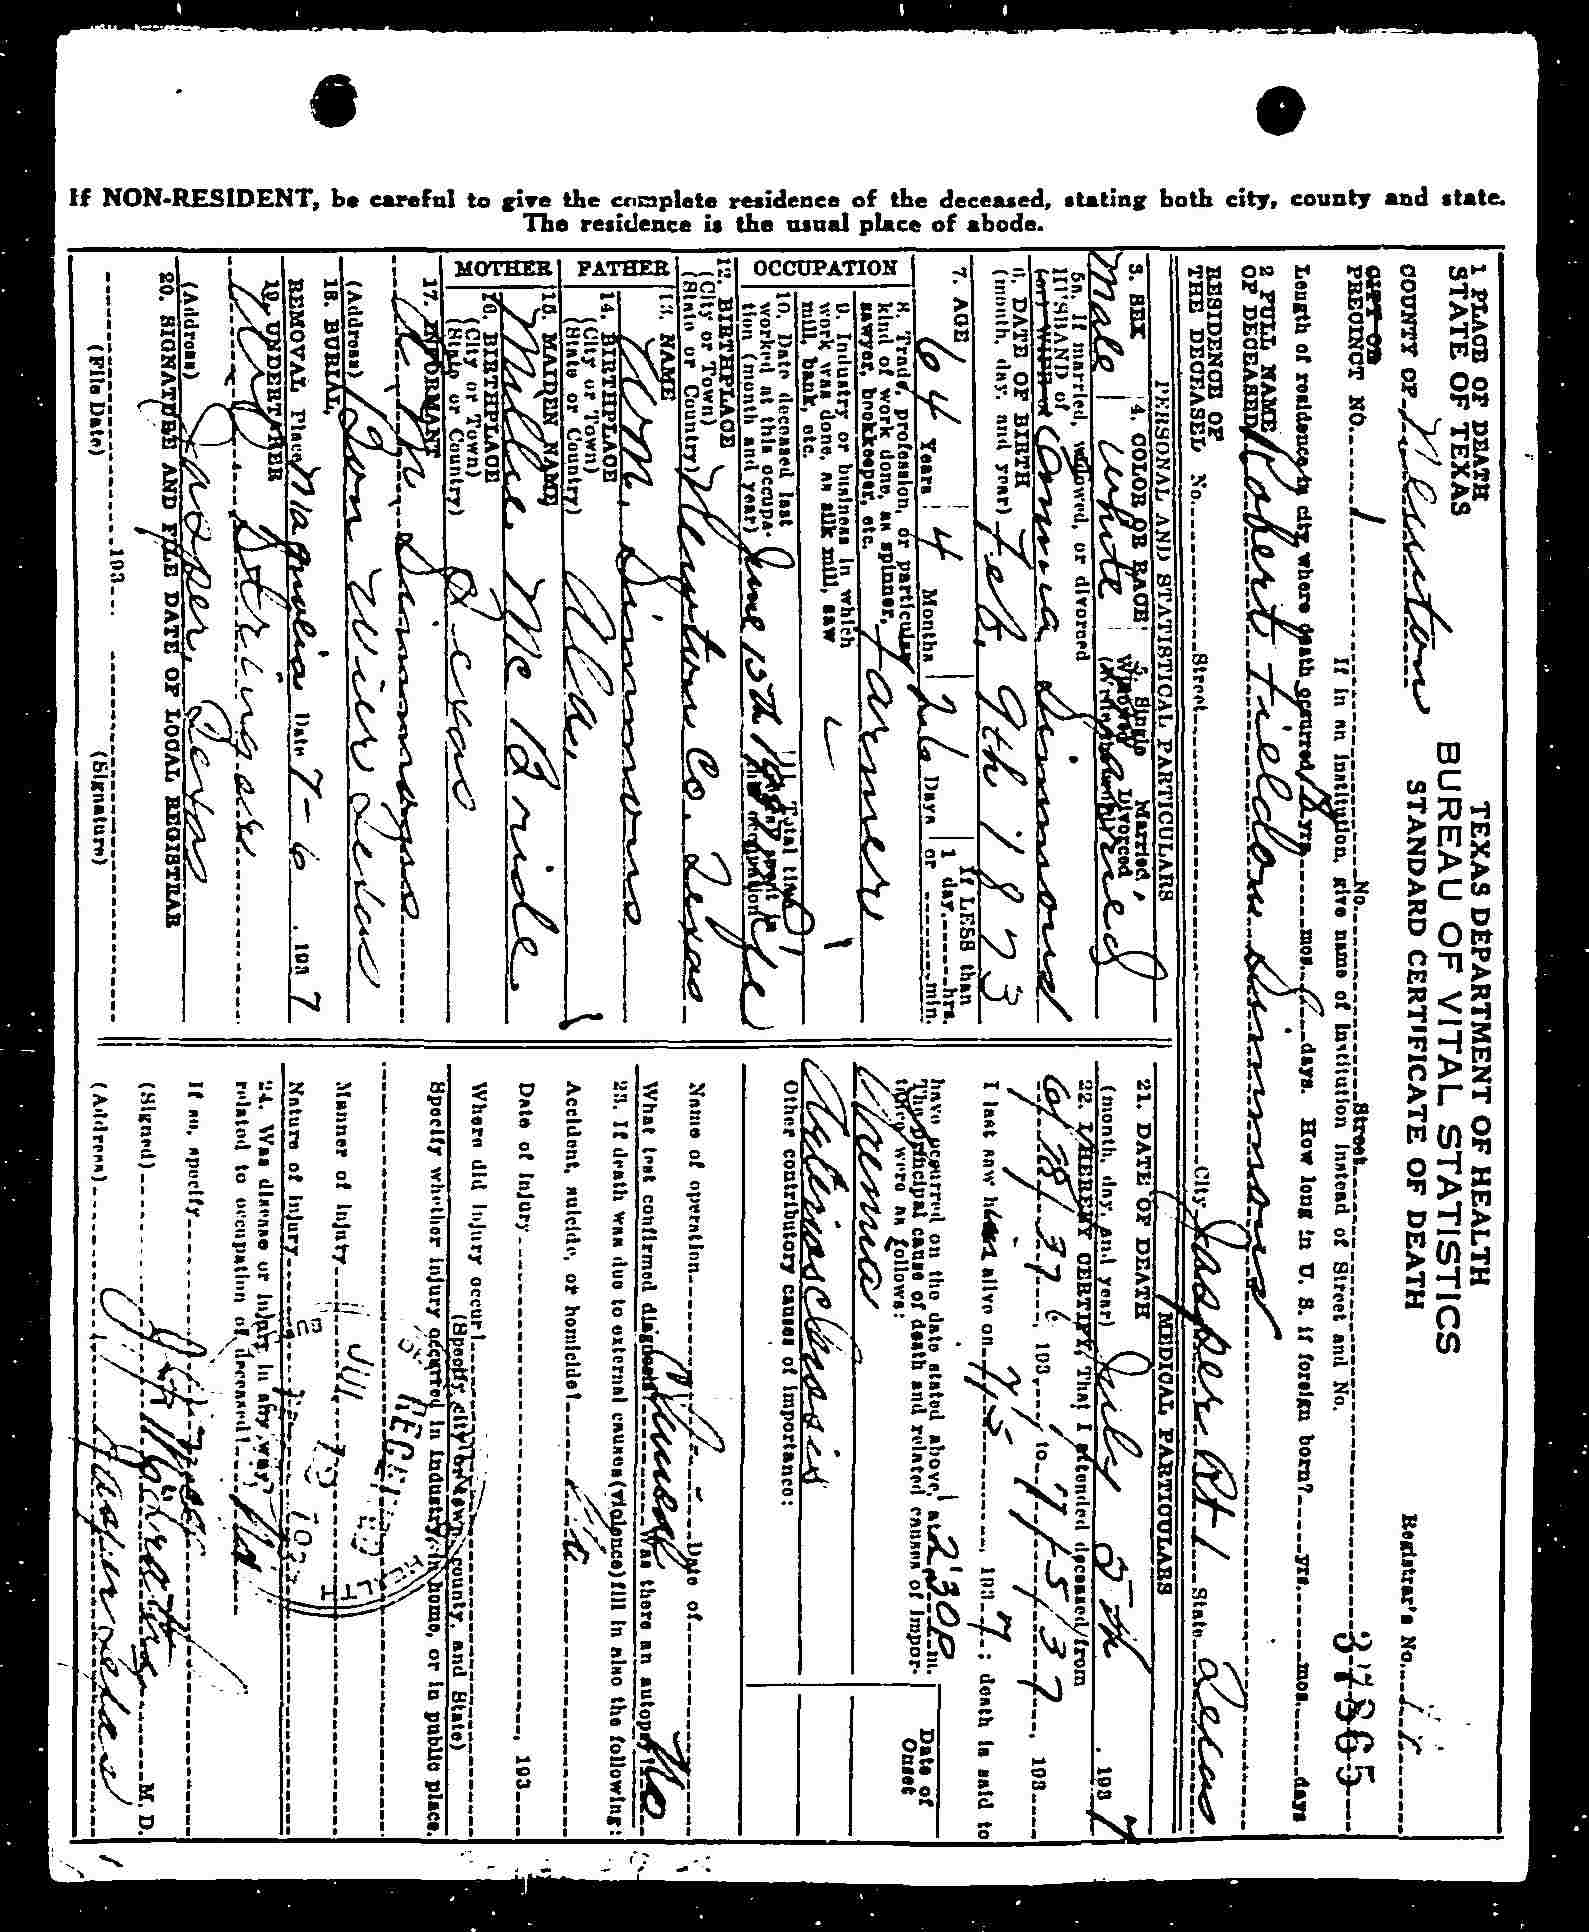 If NON-RESIDENT, be careful to give the complete residence of the deceased, stating both city, county and state.
The residence is the usual place of abode.
TEXAS DEPARTMENT OF HEALTH
BUREAU OF VITAL STATISTICS
STANDARD CERTIFICATE OF DEATH
1 PLACE OF DEATH
STATE OF TEXAS
COUNTY OF Newton
Registrar's No.
CITY OR
PRECINCT NO. 1 No. Street
37365
If in an institution, give name of institution instead of Street and No.
Length of residence in city where death occurred yrs. mos. days. How long in U. S. if foreign born? yrs. mos. days
2 FULL NAME
OF DECEASED Robert Fieldon Simmons
RESIDENCE OF
THE DECEASED, No. Street City Jasper Rt 1 State Texas
PERSONAL AND STATISTICAL PARTICULARS
3. SEX 4. COLOR OR RACE 5. Single Married, Widowed Divorced
Male White Married
5a. If married, widowed, or divorced
HUSBAND of
(or) WIFE of Simmons
6. DATE OF BIRTH
(month, day, and year) Feb. 9th 1873
7. AGE 64 Years 4 Months 26 Days If LESS than 1 day, hrs. or min.
OCCUPATION
8. Trade, profession, or particular
kind of work done, as spinner,
sawyer, bookkeeper, etc. Farmer
9. Industry or business in which
work was done, as silk mill, saw
mill, bank, etc.
10. Date deceased last
worked at this occupa-
tion (month and year) June 15th 1937
11. Total time spent in this occupation Life
12. BIRTHPLACE
(City or Town)
(State or Country) Newton Co. Texas
FATHER
13. NAME Wm. Simmons
14. BIRTHPLACE
(City or Town)
(State or Country) Ala.
MOTHER
15. MAIDEN NAME Mc Bride
16. BIRTHPLACE
(City or Town)
(State or Country) Texas
17. INFORMANT Simmons
(Address) Bon Wier Texas
18. BURIAL,
REMOVAL Place Magnolia Date 7-6, 1937
19. UNDERTAKER Stringer
(Address) Jasper, Texas
20. SIGNATURE AND FILE DATE OF LOCAL REGISTRAR
193
(File Date) (Signature)
MEDICAL PARTICULARS
21. DATE OF DEATH
(month, day, and year) July 5th, 1937
22. I HEREBY CERTIFY, That I attended deceased from
6/28/37, 193 to 7/5/37, 193
I last saw him alive on 7/5, 1937; death is said to
have occurred on the date stated above, at 2:30P m.
The principal cause of death and related causes of impor-
tance were as follows:
Date of
Onset
Uremia
Other contributory causes of importance:
Name of operation Date of
What test confirmed diagnosis Clinical Was there an autopsy? No
23. If death was due to external causes (violence) fill in also the following:
Accident, suicide, or homicide? No
Date of injury, 193
Where did injury occur?
(Specify city or town, county, and State)
Specify whether injury occurred in industry, in home, or in public place.
Manner of injury
Nature of injury
24. Was disease or injury in any way
related to occupation of deceased? No
If so, specify
(Signed) M. D.
(Address) Jasper Texas